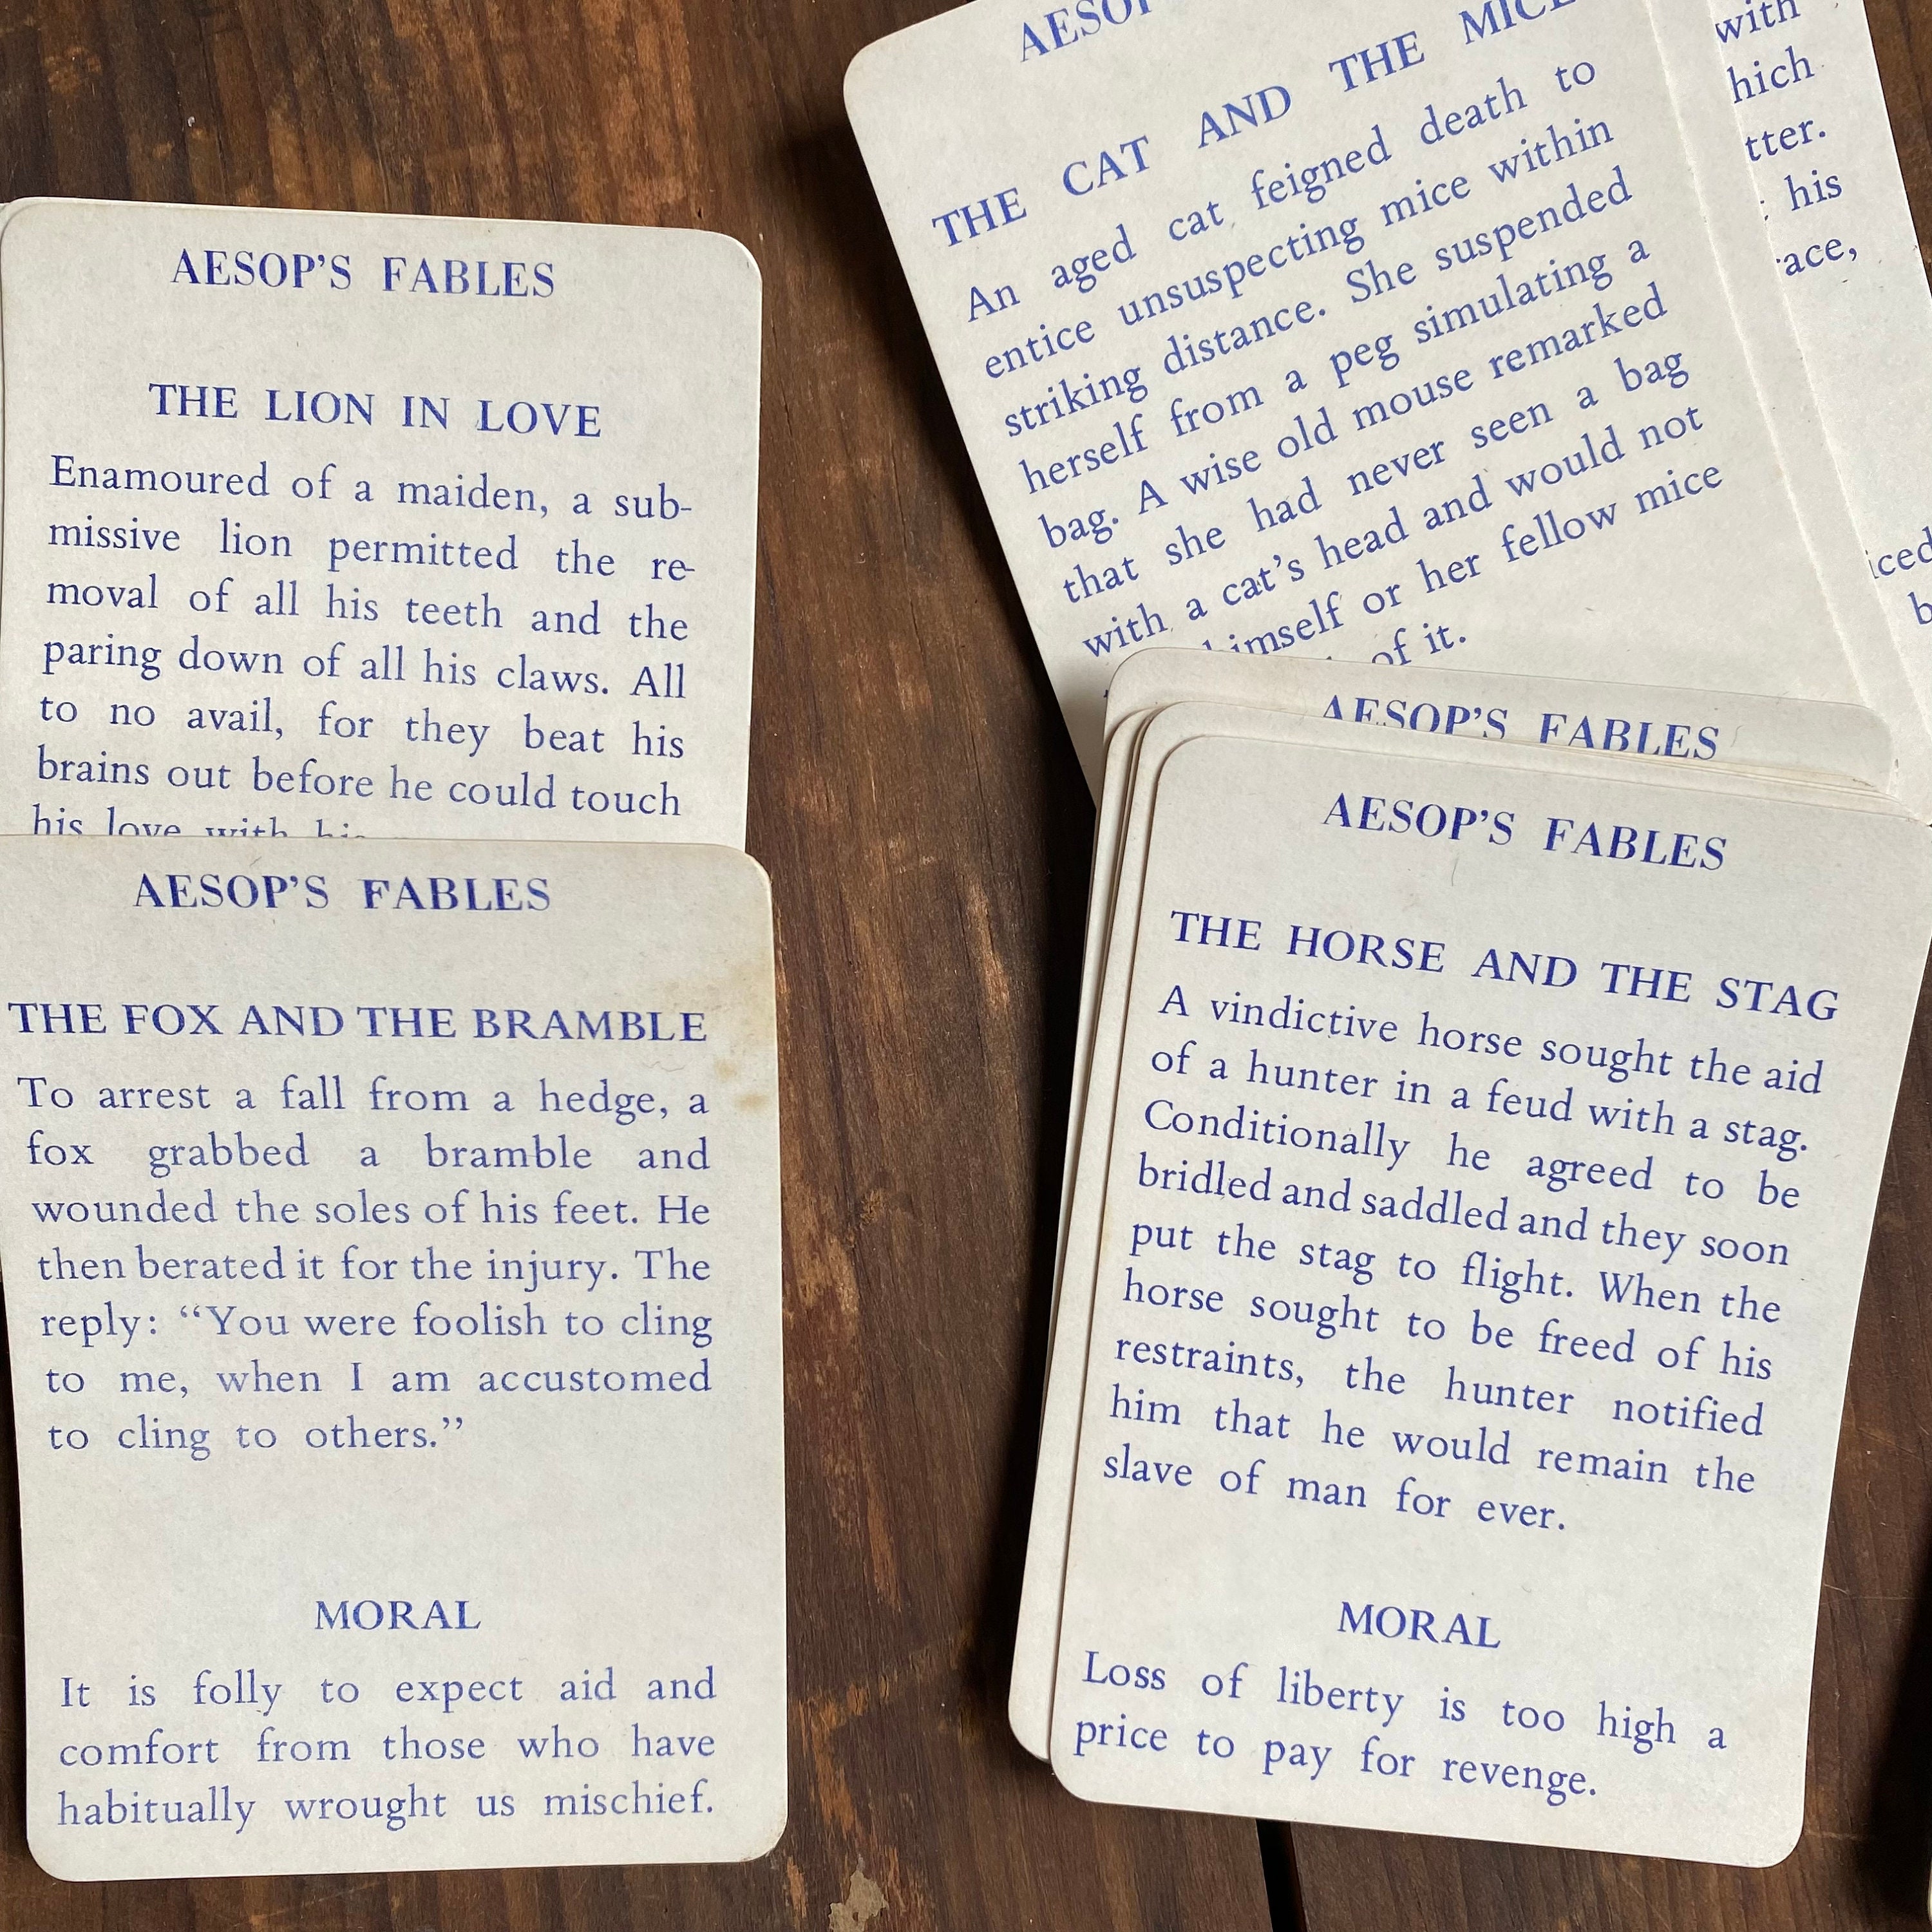 AESOP'S FABLES
THE LION IN LOVE
Enamoured of a maiden, a sub-
missive lion permitted the re-
moval of all his teeth and the
paring down of all his claws. All
to no avail, for they beat his
brains out before he could touch
his love with his
AESOP'S FABLES
THE FOX AND THE BRAMBLE
To arrest a fall from a hedge, a
fox grabbed a bramble and
wounded the soles of his feet. He
then berated it for the injury. The
reply: “You were foolish to cling
to me, when I am accustomed
to cling to others.”
MORAL
It is folly to expect aid and
comfort from those who have
habitually wrought us mischief.
THE CAT AND THE MICE
An aged cat feigned death to
entice unsuspecting mice within
striking distance. She suspended
herself from a peg simulating a
bag. A wise old mouse remarked
that she had never seen a bag
with a cat's head and would not
himself or her fellow mice
of it.
with
his
AESOP'S FABLES
AESOP'S FABLES
THE HORSE AND THE STAG
A vindictive horse sought the aid
of a hunter in a feud with a stag.
Conditionally he agreed to be
bridled and saddled and they soon
put the stag to flight. When the
horse sought to be freed of his
restraints, the hunter notified
him that he would remain the
slave of man for ever.
MORAL
Loss of liberty is too high a
price to pay for revenge.